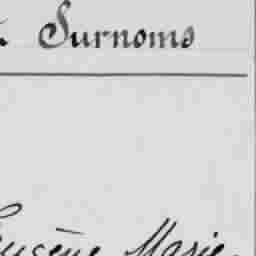 . Surnoms
Eugène Marie